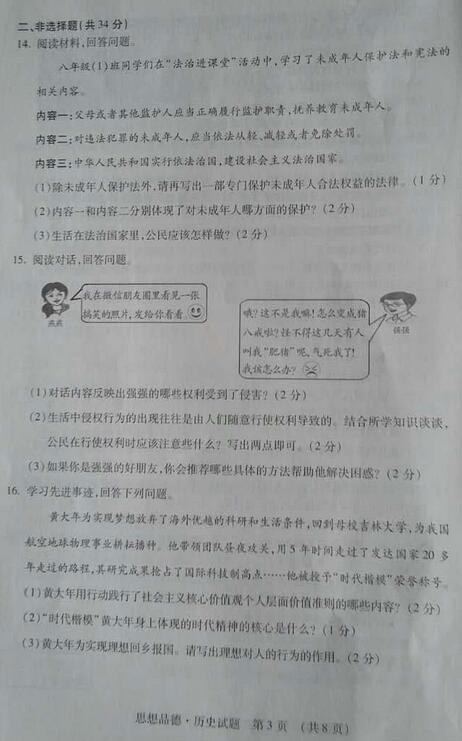 二、非选择题(共34分)
14. 阅读材料,回答问题。
八年级(1)班同学们在“法治进课堂”活动中,学习了未成年人保护法和宪法的
相关内容。
内容一:父母或者其他监护人应当正确履行监护职责,抚养教育未成年人。
内容二:对违法犯罪的未成年人,应当依法从轻、减轻或者免除处罚。
内容三:中华人民共和国实行依法治国,建设社会主义法治国家。
(1)除未成年人保护法外,请再写出一部专门保护未成年人合法权益的法律。(1分)
(2)内容一和内容二分别体现了对未成年人哪方面的保护?(2分)
(3)生活在法治国家里,公民应该怎样做?(2分)
15. 阅读对话,回答问题。
我在微信朋友圈里看见一张
搞笑的照片,发给你看看。
燕燕
哦?这不是我嘛!怎么变成猪
八戒啦?怪不得这几天有人
叫我“肥猪”呢,气死我了!
我该怎么办?
强强
(1)对话内容反映出强强的哪些权利受到了侵害?(2分)
(2)生活中侵权行为的出现往往是由人们随意行使权利导致的。结合所学知识谈谈,
公民在行使权利时应该注意些什么?写出两点即可。(2分)
(3)如果你是强强的好朋友,你会推荐哪些具体的方法帮助他解决困惑?(2分)
16. 学习先进事迹,回答下列问题。
黄大年为实现梦想放弃了海外优越的科研和生活条件,回到母校吉林大学,为我国
航空地球物理事业耕耘播种。他带领团队昼夜攻关,用5年时间走过了发达国家20多
年走过的路程,其研究成果抢占了国际科技制高点……他被授予“时代楷模”荣誉称号。
(1)黄大年用行动践行了社会主义核心价值观个人层面价值准则的哪些内容?(2分)
(2)“时代楷模”黄大年身上体现的时代精神的核心是什么?(1分)
(3)黄大年为实现理想回乡报国。请写出理想对人的行为的作用。(2分)
思想品德·历史试题 第3页 (共8页)